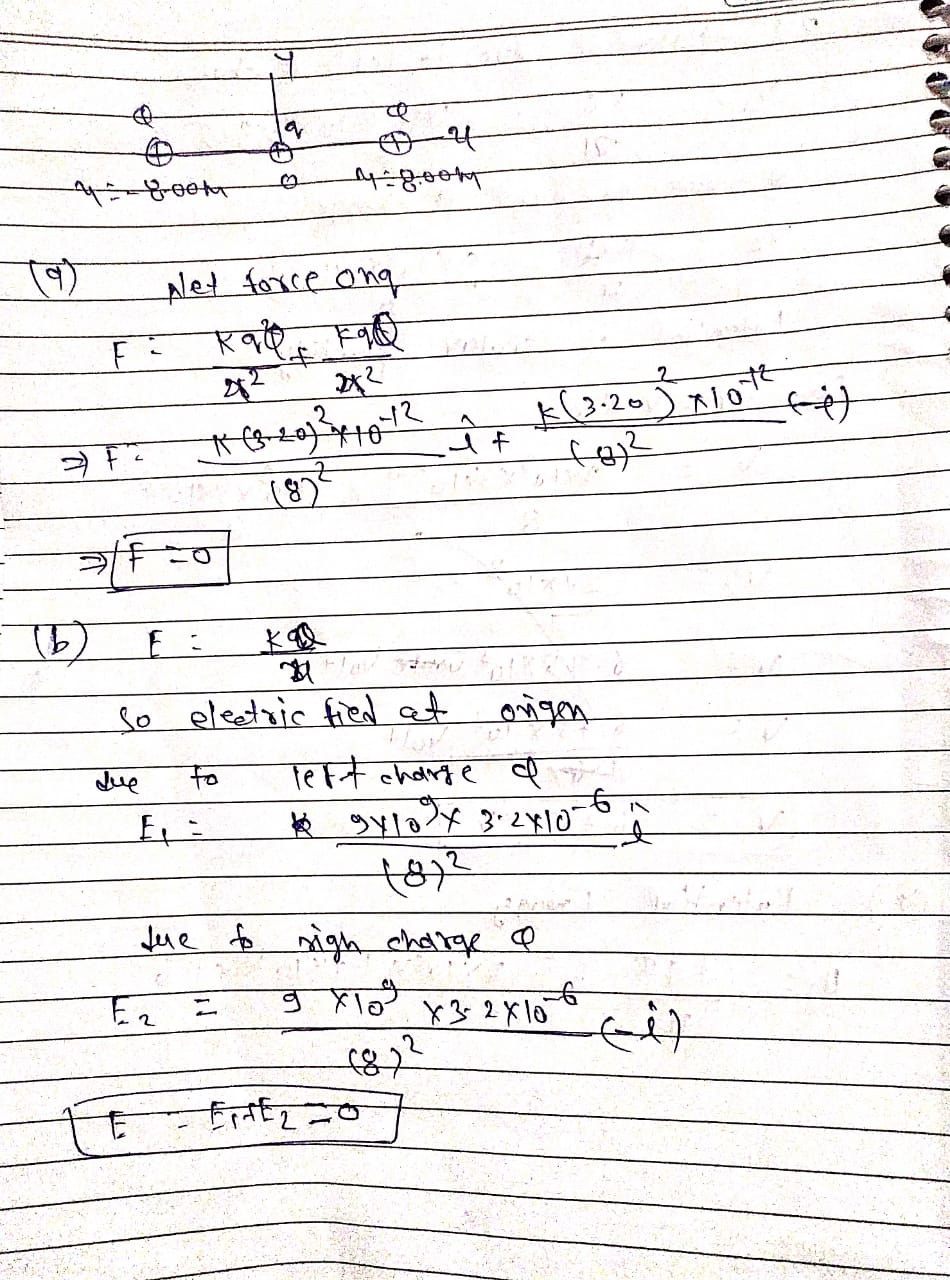 y
Q Q
q x
x=-8.00m O x=8.00m
(a) Net force on q
F = KqQ/x² + KqQ/x²
⇒ F = K(3.20)²×10⁻¹²/(8)² î + K(3.20)²×10⁻¹²/(8)² (-î)
⇒ F = 0
(b) E = KQ/x
So electric fied at origen
due to left charge Q
E₁ = 9×10⁹× 3.2×10⁻⁶/(8)² î
due to righ charge Q
E₂ = 9×10⁹ ×3.2×10⁻⁶/(8)² (-î)
E = E₁+E₂ = 0